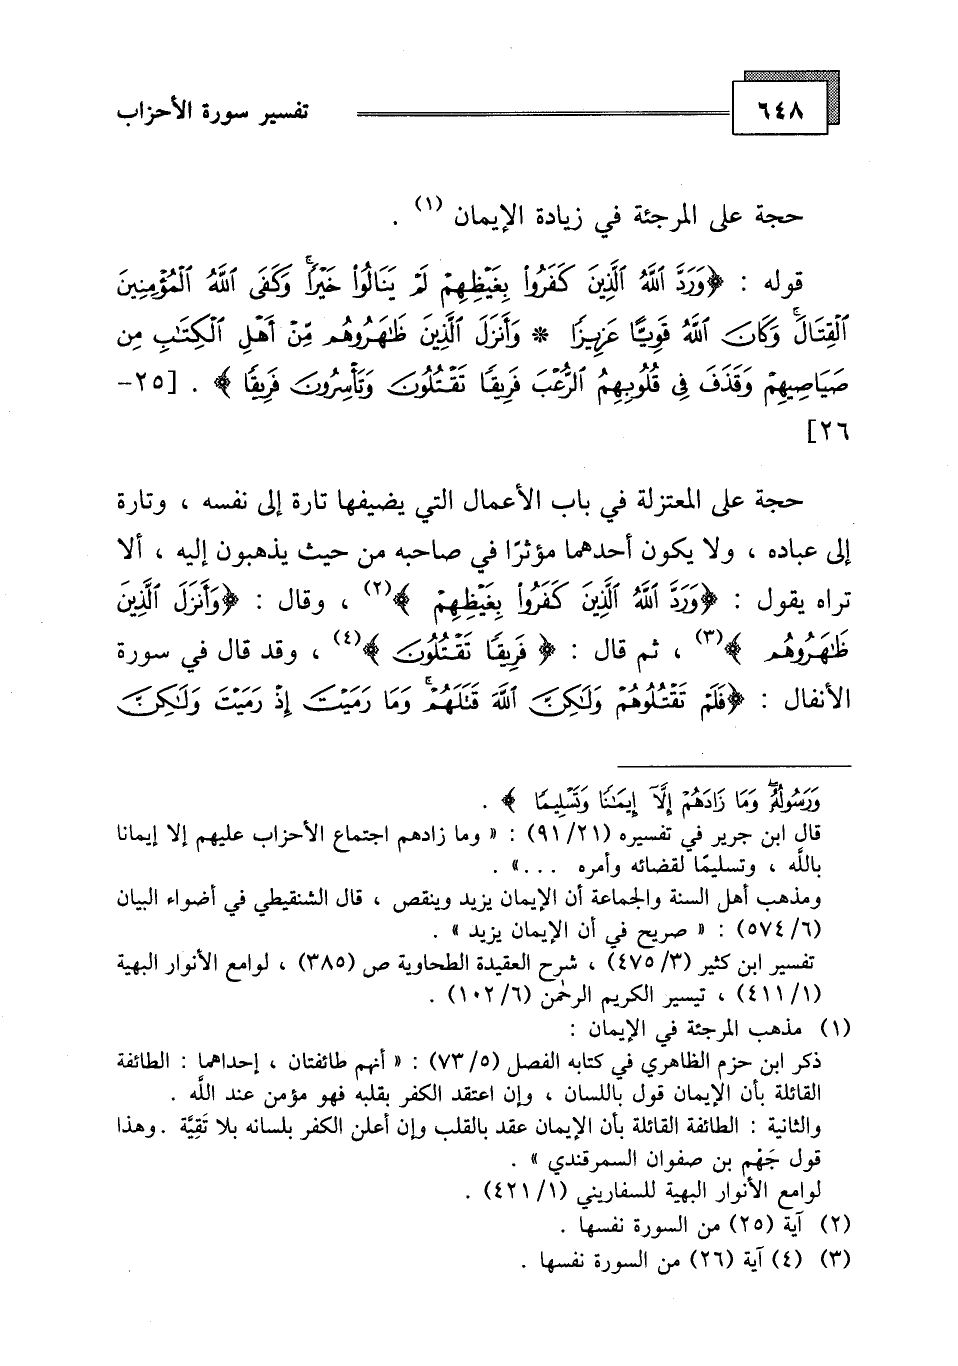 ٦٤٨ تفسير سورة الأحزاب
حجة على المرجئة في زيادة الإيمان (١) .
قوله : ﴿وَرَدَّ ٱللَّهُ ٱلَّذِينَ كَفَرُوا۟ بِغَيْظِهِمْ لَمْ يَنَالُوا۟ خَيْرًا ۚ وَكَفَى ٱللَّهُ ٱلْمُؤْمِنِينَ
ٱلْقِتَالَ ۚ وَكَانَ ٱللَّهُ قَوِيًّا عَزِيزًا * وَأَنزَلَ ٱلَّذِينَ ظَـٰهَرُوهُم مِّنْ أَهْلِ ٱلْكِتَـٰبِ مِن
صَيَاصِيهِمْ وَقَذَفَ فِى قُلُوبِهِمُ ٱلرُّعْبَ فَرِيقًا تَقْتُلُونَ وَتَأْسِرُونَ فَرِيقًا ﴾ . [٢٥-
٢٦]
حجة على المعتزلة في باب الأعمال التي يضيفها تارة إلى نفسه ، وتارة
إلى عباده ، ولا يكون أحدهما مؤثرًا في صاحبه من حيث يذهبون إليه ، ألا
تراه يقول : ﴿وَرَدَّ ٱللَّهُ ٱلَّذِينَ كَفَرُوا۟ بِغَيْظِهِمْ ﴾(٢) ، وقال : ﴿وَأَنزَلَ ٱلَّذِينَ
ظَـٰهَرُوهُم ﴾(٣) ، ثم قال : ﴿ فَرِيقًا تَقْتُلُونَ ﴾(٤) ، وقد قال في سورة
الأنفال : ﴿فَلَمْ تَقْتُلُوهُمْ وَلَـٰكِنَّ ٱللَّهَ قَتَلَهُمْ ۚ وَمَا رَمَيْتَ إِذْ رَمَيْتَ وَلَـٰكِنَّ
وَرَسُولُهُۥ ۚ وَمَا زَادَهُمْ إِلَّآ إِيمَـٰنًا وَتَسْلِيمًا ﴾ .
قال ابن جرير في تفسيره (٩١/٢١) : « وما زادهم اجتماع الأحزاب عليهم إلا إيمانا
باللَّه ، وتسليمًا لقضائه وأمره ...» .
ومذهب أهل السنة والجماعة أن الإيمان يزيد وينقص ، قال الشنقيطي في أضواء البيان
(٥٧٤/٦) : « صريح في أن الإيمان يزيد » .
تفسير ابن كثير (٤٧٥/٣) ، شرح العقيدة الطحاوية ص (٣٨٥) ، لوامع الأنوار البهية
(٤١١/١) ، تيسير الكريم الرحمٰن (١٠٢/٦) .
(١) مذهب المرجئة في الإيمان :
ذكر ابن حزم الظاهري في كتابه الفصل (٧٣/٥) : « أنهم طائفتان ، إحداهما : الطائفة
القائلة بأن الإيمان قول باللسان ، وإن اعتقد الكفر بقلبه فهو مؤمن عند اللَّه .
والثانية : الطائفة القائلة بأن الإيمان عقد بالقلب وإن أعلن الكفر بلسانه بلا تَقِيَّة . وهذا
قول جَهْم بن صفوان السمرقندي » .
لوامع الأنوار البهية للسفاريني (٤٢١/١) .
(٢) آية (٢٥) من السورة نفسها .
(٣) (٤) آية (٢٦) من السورة نفسها .